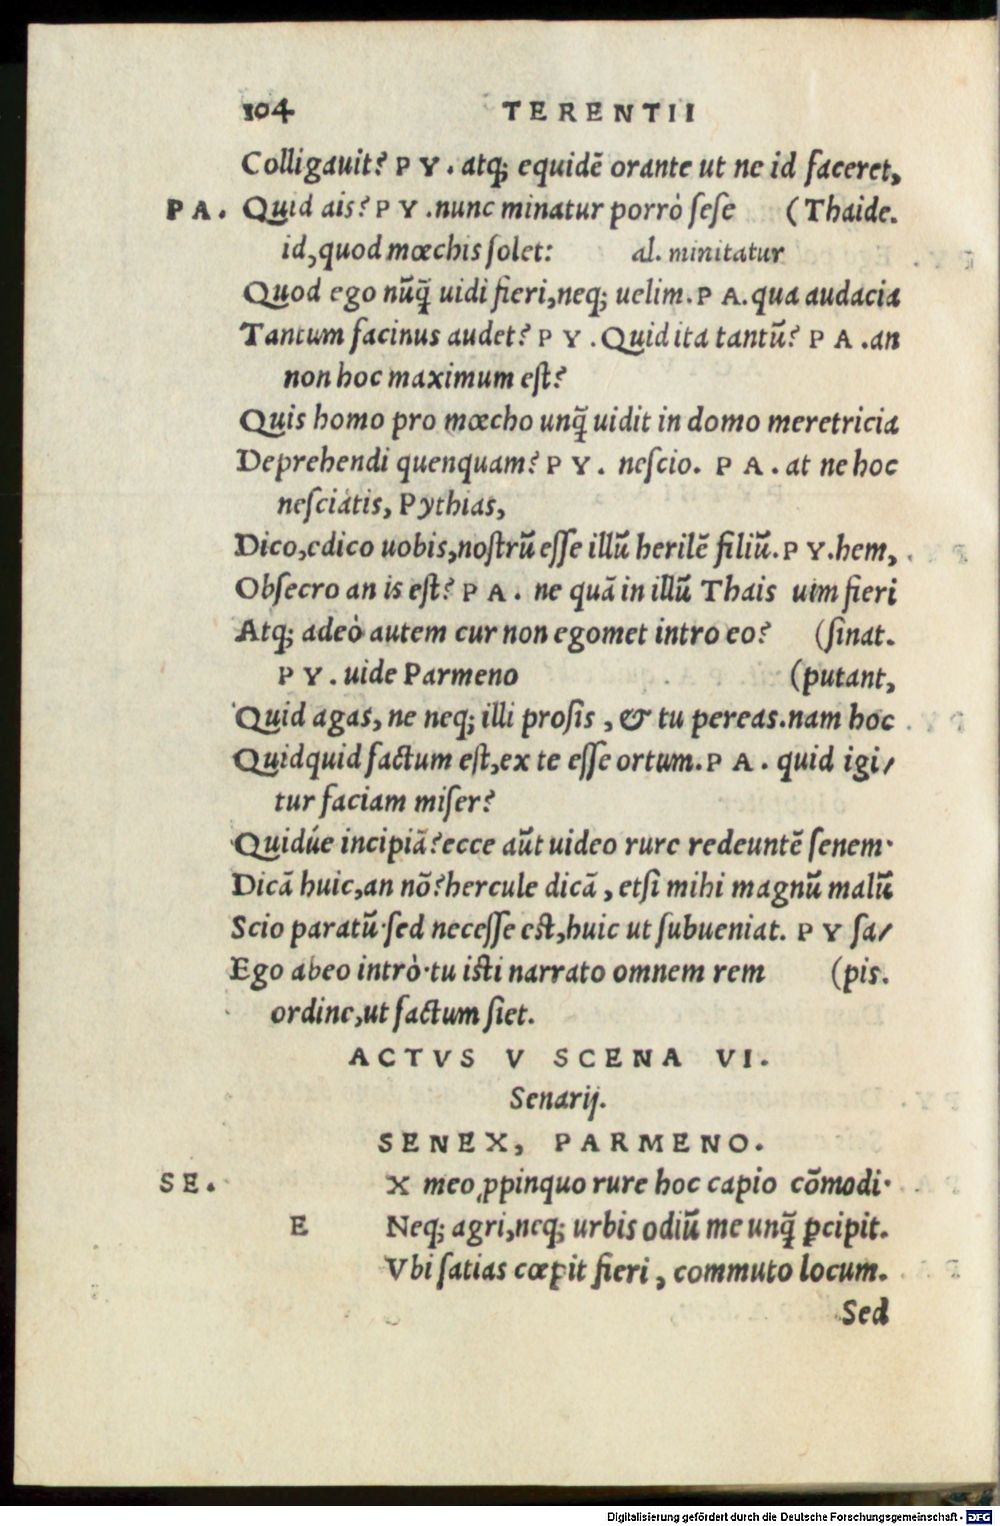 104 TERENTII
Colligauit? PY. atq; equidē orante ut ne id faceret,
PA. Quid ais? PY. nunc minatur porrò ſeſe (Thaide.
id, quod mœchis ſolet: al. minitatur
Quod ego nūq̃ uidi fieri, neq; uelim. PA. qua audacia
Tantum facinus audet? PY. Quid ita tantū? PA. an
non hoc maximum eſt?
Quis homo pro mœcho unq̃ uidit in domo meretricia
Deprehendi quenquam? PY. neſcio. PA. at ne hoc
neſciatis, Pythias,
Dico, edico uobis, noſtrū eſſe illū herilē filiū. PY. hem,
Obſecro an is eſt? PA. ne quā in illū Thais uim fieri
Atq; adeò autem cur non egomet intro eo? (ſinat.
PY. uide Parmeno (putant,
Quid agas, ne neq; illi proſis, & tu pereas. nam hoc
Quidquid factum eſt, ex te eſſe ortum. PA. quid igi/
tur faciam miſer?
Quidúe incipiā? ecce aūt uideo rure redeuntē ſenem·
Dicā huic, an nō? hercule dicā, etſi mihi magnū malū
Scio paratū· ſed neceſſe eſt, huic ut ſubueniat. PY ſa/
Ego abeo intrò· tu iſti narrato omnem rem (pis.
ordine, ut factum ſiet.
ACTVS V SCENA VI.
Senarij.
SENEX, PARMENO.
SE. X meo ꝓpinquo rure hoc capio cōmodi·
E Neq; agri, neq; urbis odiū me unq̃ ꝑcipit.
Vbi ſatias cœpit fieri, commuto locum.
Sed
Digitalisierung gefördert durch die Deutsche Forschungsgemeinschaft - DFG